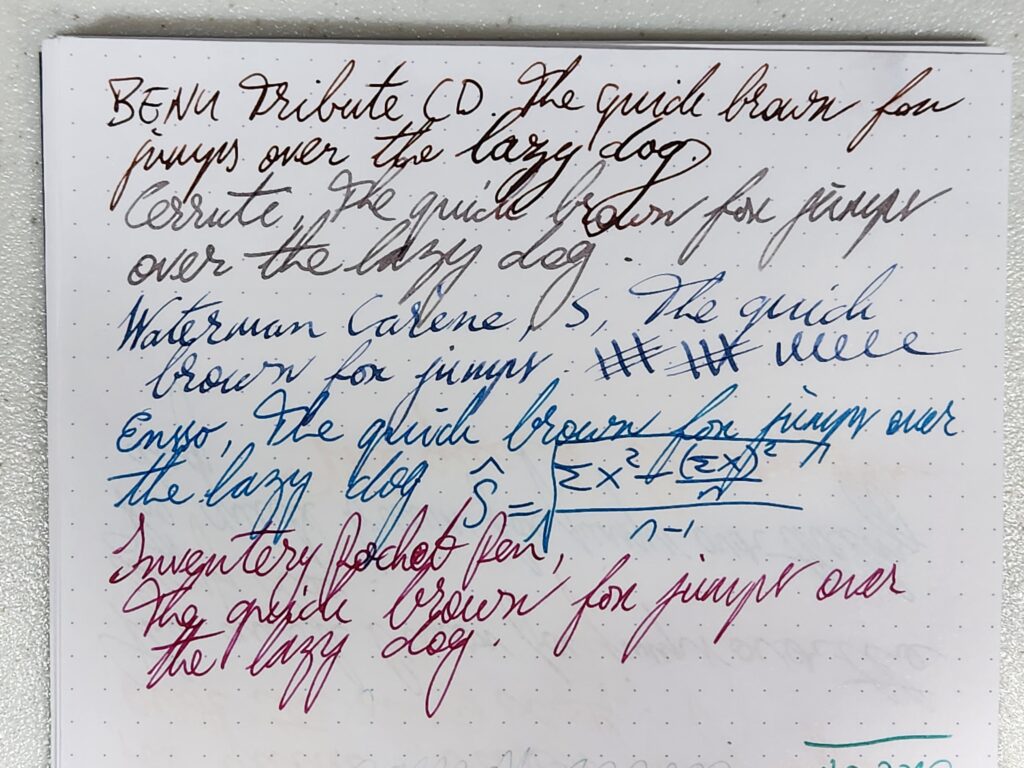 BENU Tribute CD. The quick brown fox
jumps over the lazy dog.
Cerrute, The quick brown fox jumps
over the lazy dog.
Waterman Carene, S, The quick
brown fox jumps
Ensso, The quick brown fox jumps over
the lazy dog Ŝ = √((Σx² - (Σx)²/n)/(n-1))
Inventery Pocket Pen,
The quick brown fox jumps over
the lazy dog.